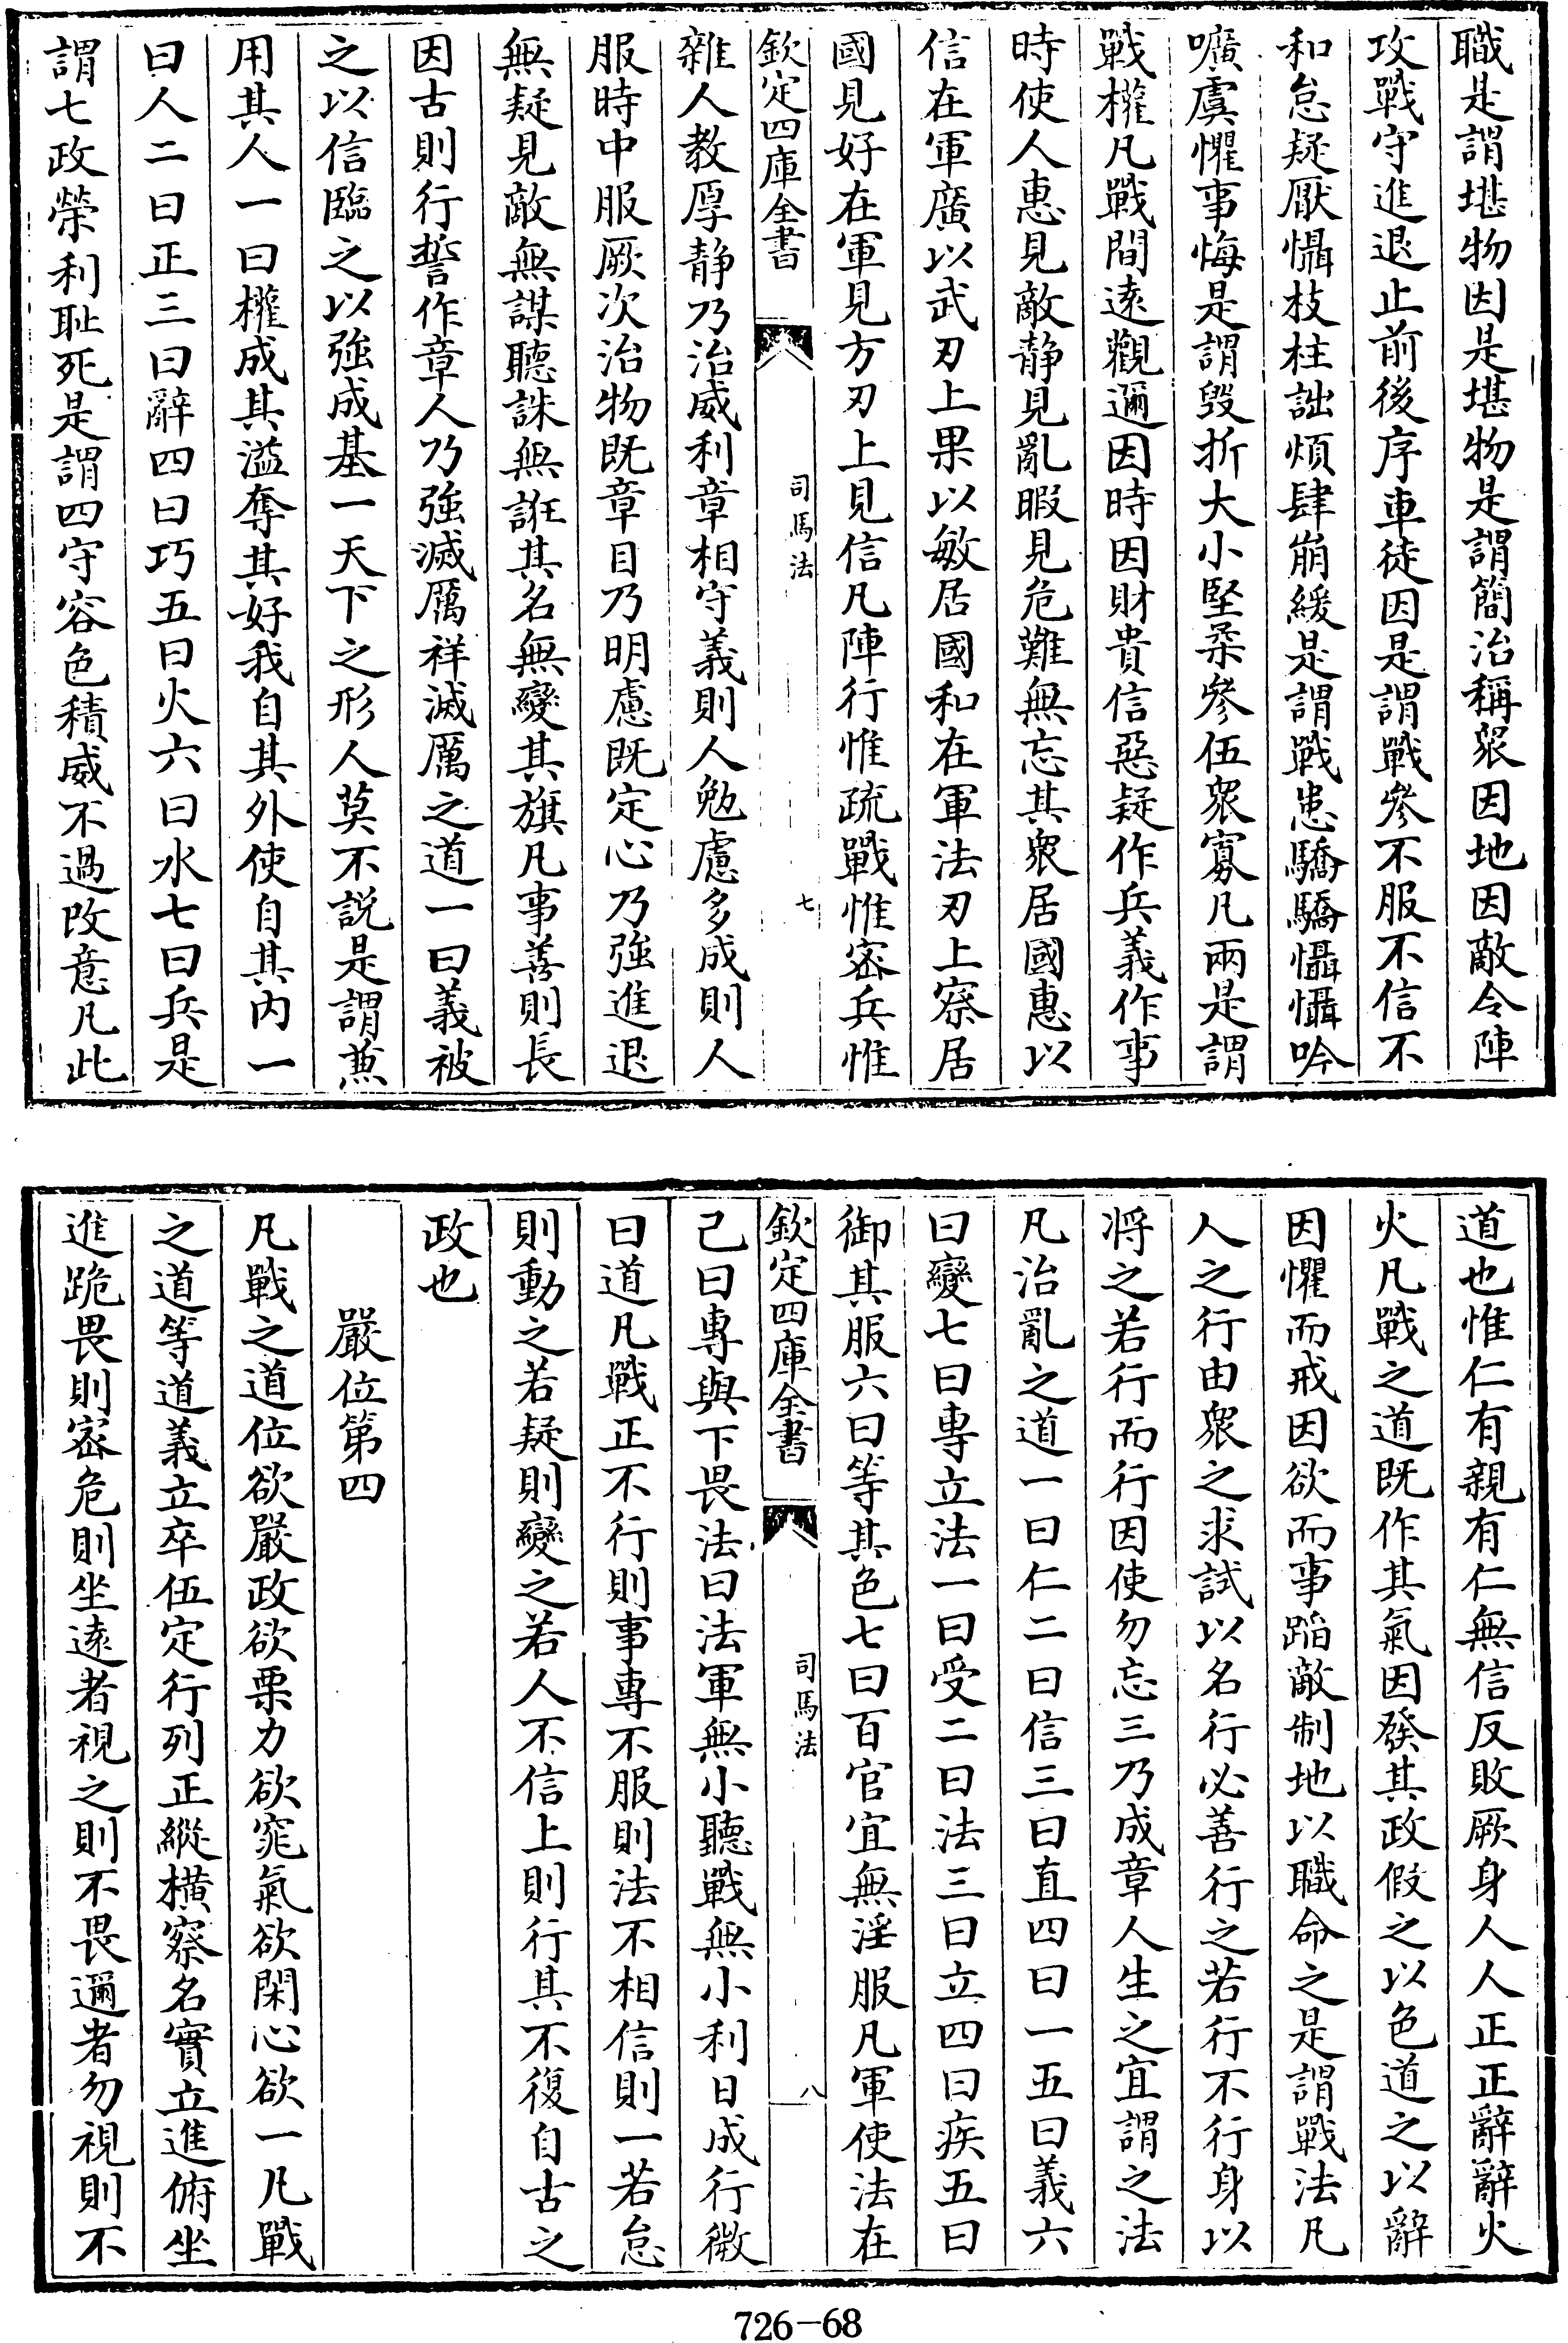 職是謂堪物因是堪物是謂簡治稱衆因地因敵令陣
攻戰守進退止前後序車徒因是謂戰參不服不信不
和怠疑厭懾枝柱詘煩肆崩緩是謂戰患驕驕懾懾吟
嚝虞懼事悔是謂毀折大小堅柔參伍衆寡凡兩是謂
戰權凡戰間遠觀邇因時因財貴信惡疑作兵義作事
時使人惠見敵静見亂暇見危難無忘其衆居國惠以
信在軍廣以武刃上果以敏居國和在軍法刃上察居
國見好在軍見方刃上見信凡陣行惟疏戰惟密兵惟
欽定四庫全書
司馬法
七
雜人教厚静乃治威利章相守義則人勉慮多成則人
服時中服厥次治物既章目乃明慮既定心乃強進退
無疑見敵無謀聽誅無誑其名無變其旗凡事善則長
因古則行誓作章人乃強滅厲祥滅厲之道一曰義被
之以信臨之以強成基一天下之形人莫不説是謂兼
用其人一曰權成其溢奪其好我自其外使自其内一
曰人二曰正三曰辭四曰巧五曰火六曰水七曰兵是
謂七政榮利耻死是謂四守容色積威不過改意凡此
道也惟仁有親有仁無信反敗厥身人人正正辭辭火
火凡戰之道既作其氣因發其政假之以色道之以辭
因懼而戒因欲而事蹈敵制地以職命之是謂戰法凡
人之行由衆之求試以名行必善行之若行不行身以
将之若行而行因使勿忘三乃成章人生之宜謂之法
凡治亂之道一曰仁二曰信三曰直四曰一五曰義六
曰變七曰專立法一曰受二曰法三曰立四曰疾五曰
御其服六曰等其色七曰百官宜無淫服凡軍使法在
欽定四庫全書
司馬法
八
己曰專與下畏法曰法軍無小聽戰無小利日成行微
曰道凡戰正不行則事專不服則法不相信則一若怠
則動之若疑則變之若人不信上則行其不復自古之
政也
嚴位第四
凡戰之道位欲嚴政欲栗力欲窕氣欲閑心欲一凡戰
之道等道義立卒伍定行列正縱横察名實立進俯坐
進跪畏則密危則坐遠者視之則不畏邇者勿視則不
726-68